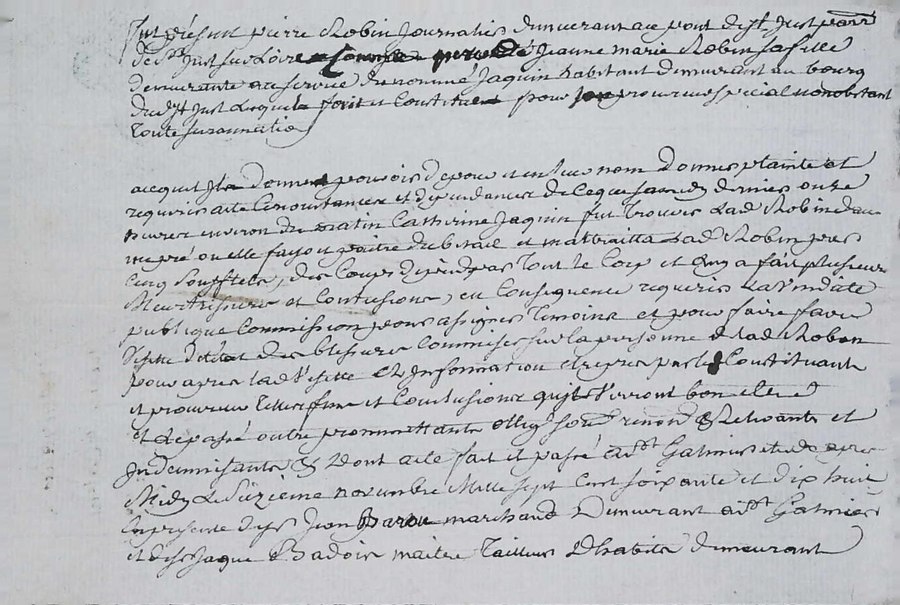 fut présent pierre Robin Journalier demeurant au pont de st Just parr
de st Just sur Loire Jeanne marie Robin sa fille
demeurante au service du nommé Jaquin habitant demeurant au bourg
dud st Just Lequel fait et Constitue pour son procureur special nonobstant
toute surannation
auquel Il donne pouvoir de pour et en leur nom donner plainte et
requerir acte Circonstances et dependances de Ceque samedy dernier onze
heures environ du matin Catherine Jaquin fut trouver Lad Robin dans
un pré ou elle fayoit paitre du betail et maltraitta Lad Robin par
Cinq Soufflets, des Coups de pied par tout le Corp et luy a fait plusieurs
Meurtrissures et Contusions, en Consequence requerir La vindicte
publique Commission pour assigner temoins et pour faire faire
visitte detat des blessures Commises sur la personne de Lad Robin
pour apres lad visitte et Information etre pris par le Constituant
et procureur telles fins et Conclusions quil verront bon etre
et de passé outre promettants oblig renon Relevants et
Indemnisants & Dont acte fait et passé a st Galmier etude apres
Midy Le suzieme novembre Mille sept Cent soixante et dix huit
En presence de sr Jean Barou marchand Demeurant a st Galmier
et de sr Jaque Badois maitre tailleur Dhabits demeurant